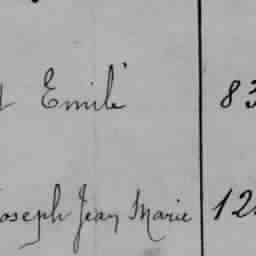 Emile 83
Joseph Jean Marie 12